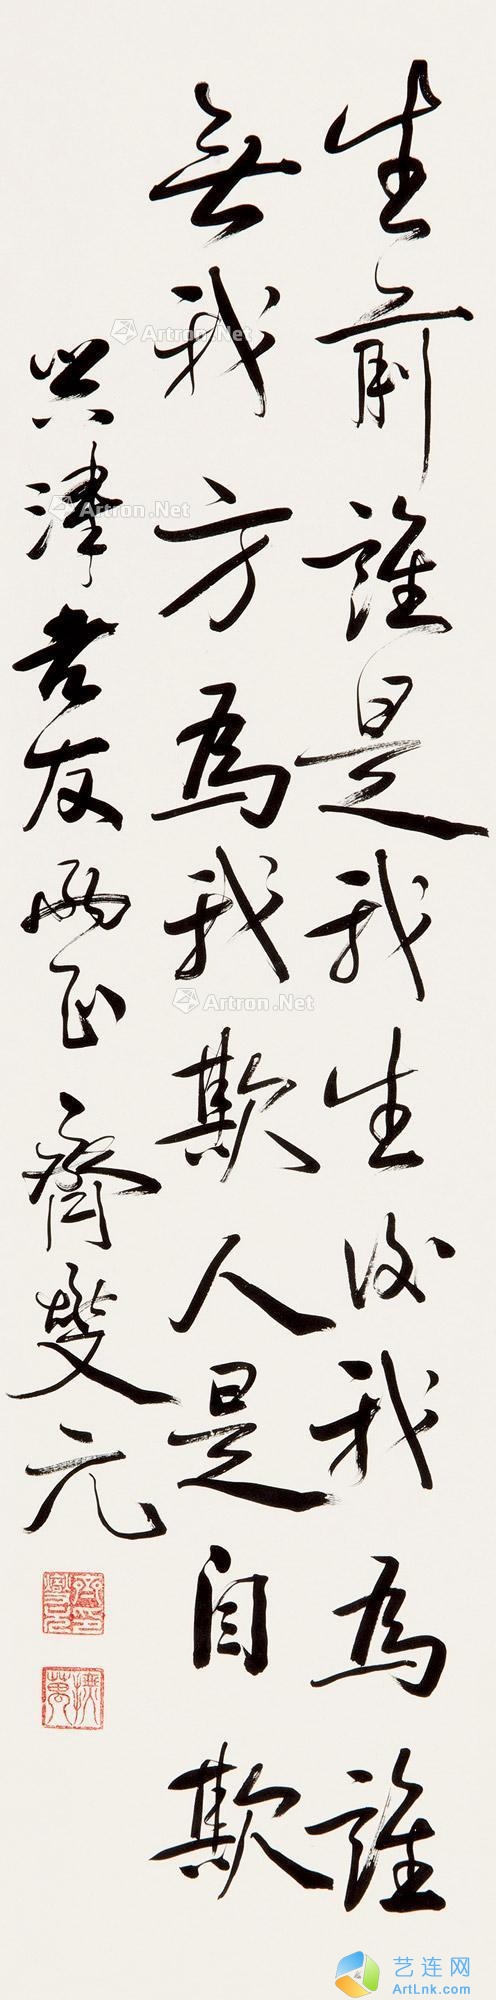 生前誰是我生後我為誰
無我方為我欺人是自欺
興津老友兩正 齊燮元
齊燮元印
撫萬
Artron.Net
Artron.Net
Artron.Net
艺连网
ArtLnk.com